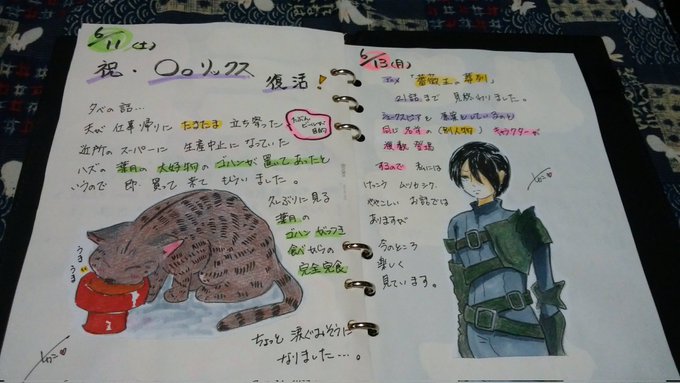 6/11(土)
祝・〇〇リックス 復活!
夕べの話…
夫が仕事帰りにたまたま立ち寄った
たぶんビールが目的
近所のスーパーに生産中止になっていた
ハズの葉月の大好物のゴハンが置いてあったと
いうので即、買って来てもらいました。
久しぶりに見る
葉月の
ゴハンがっつき
食べからの
完全完食
うま
うま
ちょっと涙ぐみそうに
なりました…。
6/13(月)
アニメ「薔薇王の葬列」
21話まで見終わりました。
シェークスピアを原案としているのと
同じ名前の(別人物)キャラクターが
複数登場
するので私には
けっこうムツカシク、
ややこしいお話では
ありますが
今のところ
楽しく
見ています。